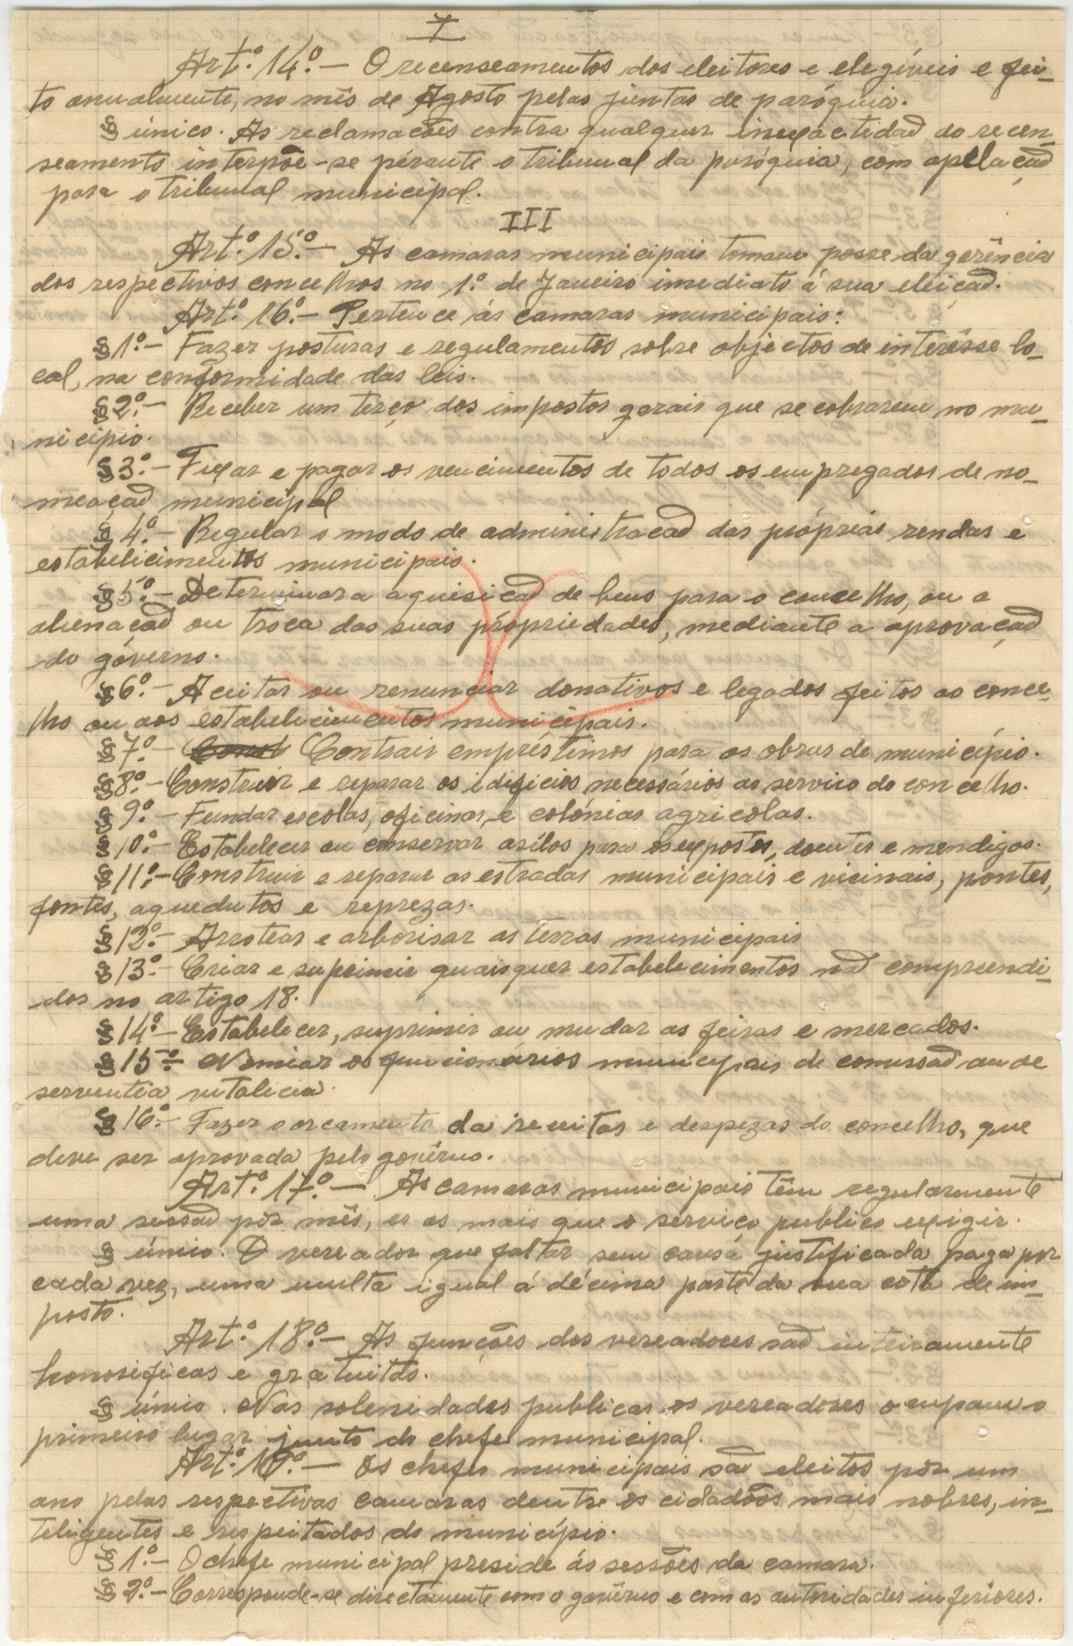 I
Art.º 14º.- O recenseamentos dos eleitores e elegíveis e fei-
to anualmente, no mês de Agosto pelas juntas de paróquia.
§ único. As reclamações contra qualquer inexactidaõ do recen-
seamento interpõe-se pérante o tribunal da paróquia, com apelaçaõ
para o tribunal municipal.
III
Art.º 15º.- As camaras municipais tomam posse da gerência
dos respectivos concelhos no 1º. de Janeiro imediato á sua eleiçaõ.
Art.º 16º.- Pertence ás camaras municipais:
§1º.- Fazer posturas e regulamentos sobre objectos de interêsse lo-
cal, na conformidade das leis.
§2º.- Receber um terço dos impostos gerais que se cobrarem no mu-
nicipio.
§3º.- Fixar e pagar os vencimentos de todos os empregados de no-
meaçaõ municipal
§4º.- Regular o modo de administracaõ das própriás rendas e
estabelicimentos municipais.
§5º.- Determinar a aquisicaõ de bens para o concelho, ou a
alienaçaõ ou troca das suas própriedades, mediante a aprovaçaõ
do góverno.
§6º.- Aceitar ou renunciar donativos e legados feitos ao conce-
lho ou aos estabelicimentos municipais.
§7º.- Const Contrair empréstimos para as obras do municipio.
§8º.- Construir e reparar os idificios necessários ao servico do concelho.
§9º.- Fundar escolas, oficinas, e colónias agricolas.
§10º.- Estabelecer ou conservar asilos para os expostos, doentes e mendigos.
§11º.- Construir e reparar as estradas municipais e vicinais, pontes,
fontes, aquedutos e reprezas.
§12º.- Arrotear e arborisar as terras municipais
§13º.- Criar e suprimir quaisquer estabelecimentos naõ compreendi-
dos no artigo 18.
§14º.- Estabelecer, suprimir ou mudar as feiras e mercados.
§15º.- Nomiar os funcionários municipais de comissaõ ou de
serventia vitalicia.
§16º.- Fazer o orcamento da receitas e despezas do concelho, que
deve ser aprovada pelo govêrno.
Art.º 17º.- As camaras municipais têm regularmente
uma sessaõ pôr mês, e as mais que o serviço publico exigir.
§ único. O vereador que faltar sem causa justificada paga por
cada vez, uma multa igual á décima parte da sua cota de im-
posto.
Art.º 18º.- As funções dos vereadores saõ inteiramente
honorificas e gratuitas.
§ único. Nas solenidades publicas os vereadores ocupam o
primeiro lugar junto do chefe municipal.
Art.º 19º.- Os chefes municipais saõ eleitos pôr um
ano pelas respectivas camaras dentre os cidadãos mais nobres, in-
teligentes e respeitados do município.
§1º.- O chefe municipal preside ás sessões da camara.
§2º.- Corresponde-se directamente com o govêrno e com as autoridades inferiores.